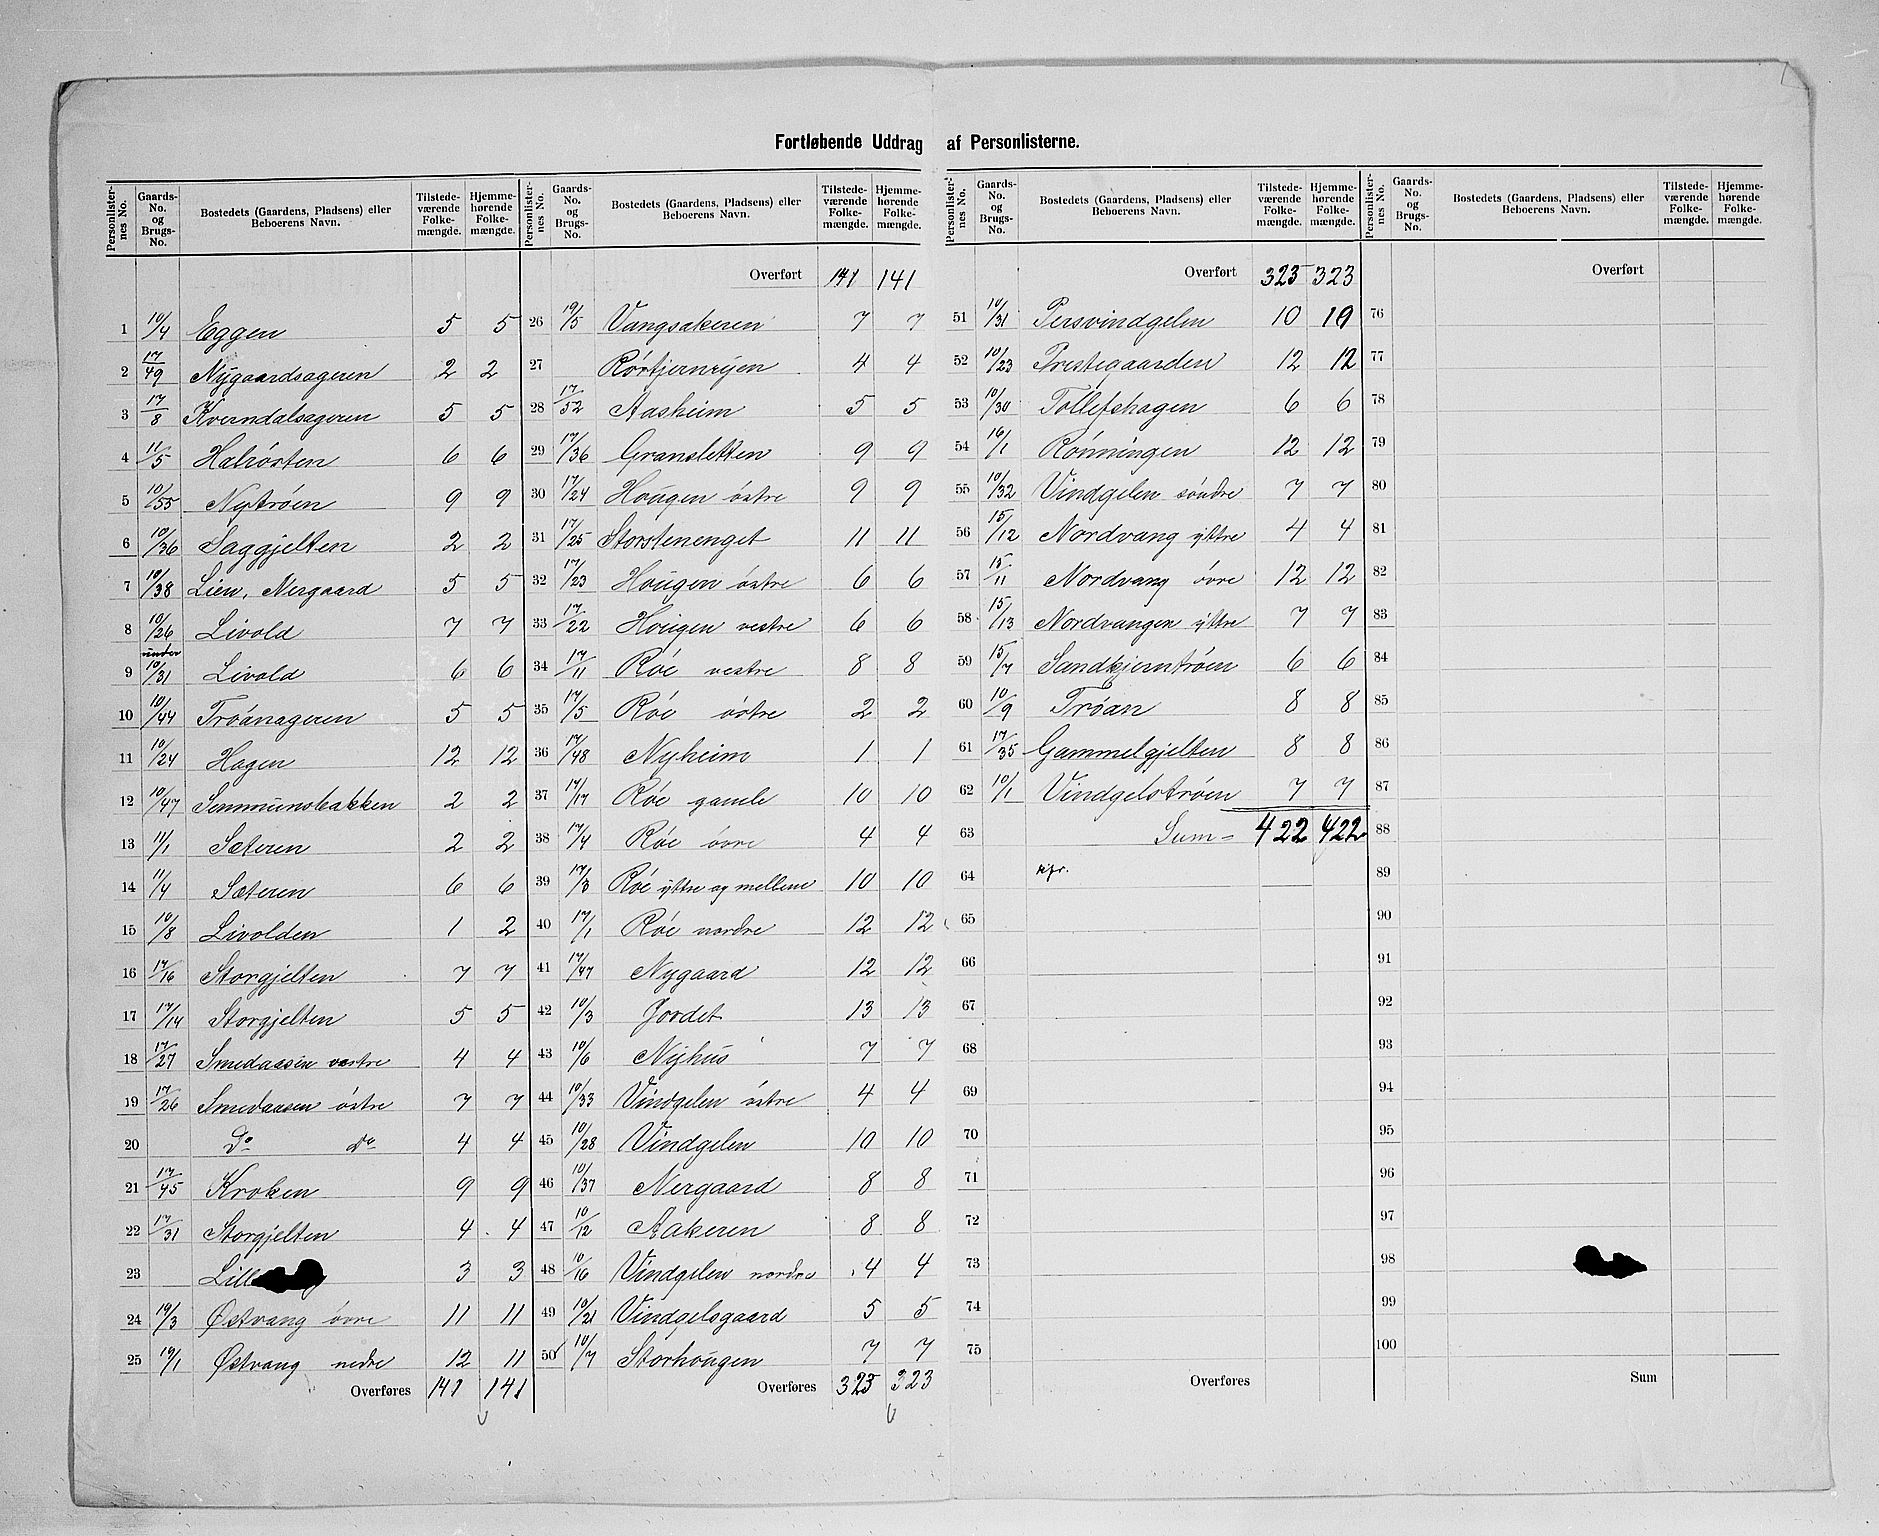 Fortløbende Uddrag af Personlisterne.
Personlister-nes No. | Gaards-No. og Brugs-No. | Bostedets (Gaardens, Pladsens) eller Beboerens Navn. | Tilstede-værende Folke-mængde. | Hjemme-hørende Folke-mængde.
1 10/4 Eggen 5 5
2 17/49 Nygaardsageren 2 2
3 17/8 Kverndalsageren 5 5
4 11/5 Halvörsten 6 6
5 10/55 Nytröen 9 9
6 10/36 Saggjelten 2 2
7 10/38 Lien, Nergaard 5 5
8 10/26 Livold 7 7
9 under 10/31 Livold 6 6
10 10/44 Tröanageren 5 5
11 10/24 Hagen 12 12
12 10/47 Simmunsbakken 2 2
13 11/1 Sæteren 2 2
14 11/4 Sæteren 6 6
15 10/8 Livolden 1 2
16 17/16 Storgjelten 7 7
17 17/14 Storgjelten 5 5
18 17/27 Smedaasen vestre 4 4
19 17/26 Smedaasen östre 7 7
20 Do do 4 4
21 17/45 Kroken 9 9
22 17/31 Storgjelten 4 4
23 3 3
24 19/3 Østvang övre 11 11
25 19/1 Østvang nedre 12 11
Overføres 141 141
Personlister-nes No. | Gaards-No. og Brugs-No. | Bostedets (Gaardens, Pladsens) eller Beboerens Navn. | Tilstede-værende Folke-mængde. | Hjemme-hørende Folke-mængde.
Overført 141 141
26 19/5 Vangsakeren 7 7
27 Rörtjernryen 4 4
28 17/52 Aasheim 5 5
29 17/36 Gransletten 9 9
30 17/24 Hougen östre 9 9
31 17/25 Storstenenget 11 11
32 17/23 Hougen östre 6 6
33 17/22 Hougen vestre 6 6
34 17/11 Röe vestre 8 8
35 17/5 Röe östre 2 2
36 17/48 Nyheim 1 1
37 17/17 Röe gamle 10 10
38 17/4 Röe övre 4 4
39 17/3 Röe yttre og mellem 10 10
40 17/1 Röe nordre 12 12
41 17/47 Nygaard 12 12
42 10/3 Jordet 13 13
43 10/6 Nyhus 7 7
44 10/33 Vindgelen östre 4 4
45 10/28 Vindgelen 10 10
46 10/37 Nergaard 8 8
47 10/12 Aakeren 8 8
48 10/16 Vindgelen nordre 4 4
49 10/21 Vindgelsgaard 5 5
50 10/7 Storhougen 7 7
Overføres 323 323
Personlister-nes No. | Gaards-No. og Brugs-No. | Bostedets (Gaardens, Pladsens) eller Beboerens Navn. | Tilstede-værende Folke-mængde. | Hjemme-hørende Folke-mængde.
Overført 323 323
51 10/31 Persvindgelen 10 10
52 10/23 Prestegaarden 12 12
53 10/30 Tollefshagen 6 6
54 16/1 Rönningen 12 12
55 10/32 Vindgelen söndre 7 7
56 15/12 Nordvang yttre 4 4
57 15/11 Nordvang övre 12 12
58 15/13 Nordvangen yttre 7 7
59 15/7 Sandkjerntröen 6 6
60 10/9 Tröan 8 8
61 17/35 Gammelgjelten 8 8
62 10/1 Vindgelströen 7 7
63 Sum = 422 422
64 kfr.
65
66
67
68
69
70
71
72
73
74
75
Overføres
Personlister-nes No. | Gaards-No. og Brugs-No. | Bostedets (Gaardens, Pladsens) eller Beboerens Navn. | Tilstede-værende Folke-mængde. | Hjemme-hørende Folke-mængde.
Overført
76
77
78
79
80
81
82
83
84
85
86
87
88
89
90
91
92
93
94
95
96
97
98
99
100
Sum